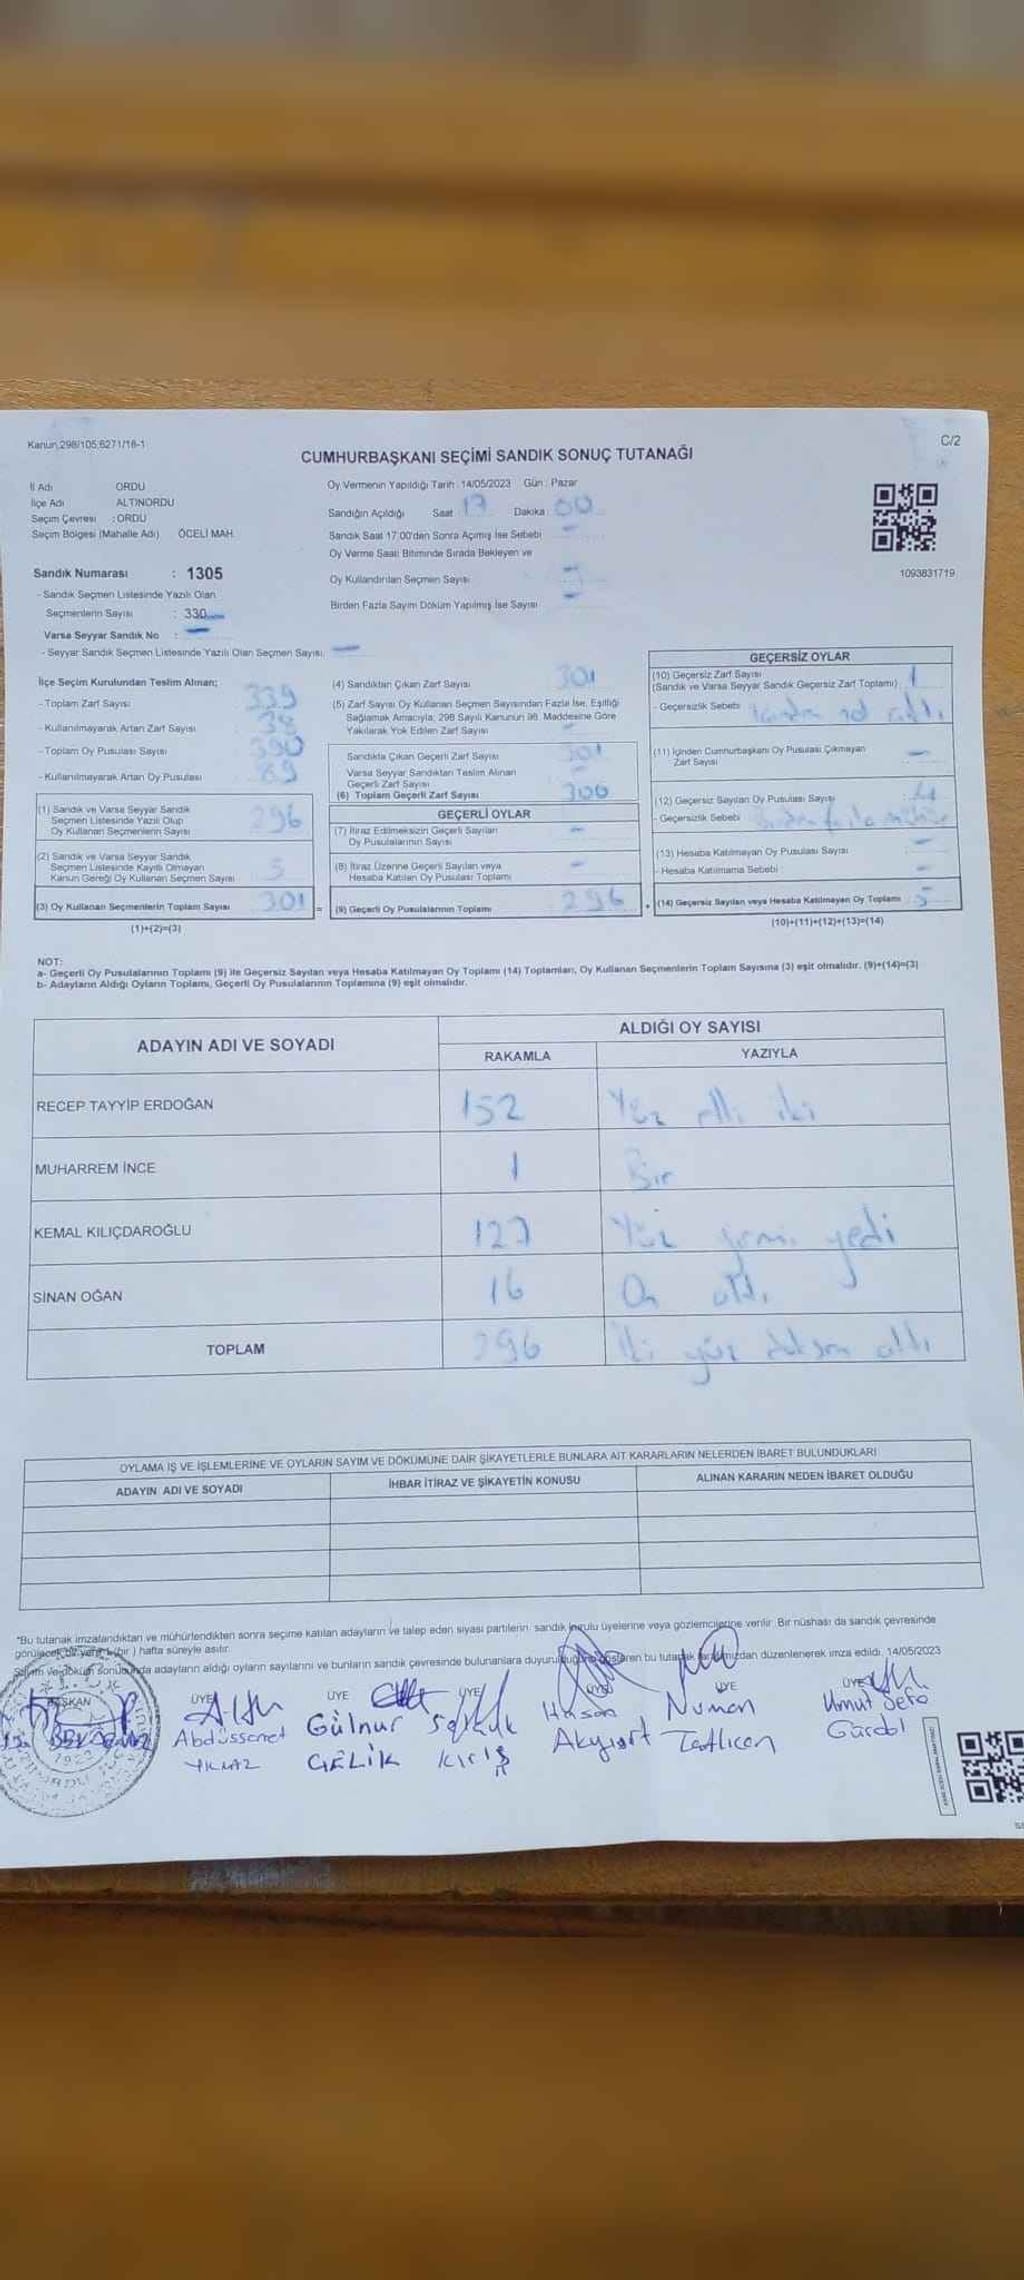 Kanun:298/105;6271/18-1
C/2
CUMHURBAŞKANI SEÇİMİ SANDIK SONUÇ TUTANAĞI
İl Adı ORDU
İlçe Adı ALTINORDU
Seçim Çevresi : ORDU
Seçim Bölgesi (Mahalle Adı) ÖCELİ MAH.
Sandık Numarası : 1305
- Sandık Seçmen Listesinde Yazılı Olan
Seçmenlerin Sayısı : 330
Varsa Seyyar Sandık No : -
- Seyyar Sandık Seçmen Listesinde Yazılı Olan Seçmen Sayısı: -
Oy Vermenin Yapıldığı Tarih : 14/05/2023 Gün : Pazar
Sandığın Açıldığı Saat : 17 Dakika : 00
Sandık Saat 17.00'den Sonra Açımış İse Sebebi : -
Oy Verme Saati Bitiminde Sırada Bekleyen ve
Oy Kullandırılan Seçmen Sayısı : -
Birden Fazla Sayım Döküm Yapılmış İse Sayısı : -
1093831719
İlçe Seçim Kurulundan Teslim Alınan;
- Toplam Zarf Sayısı 339
- Kullanılmayarak Artan Zarf Sayısı 38
- Toplam Oy Pusulası Sayısı 390
- Kullanılmayarak Artan Oy Pusulası 89
(1) Sandık ve Varsa Seyyar Sandık
Seçmen Listesinde Yazılı Olup
Oy Kullanan Seçmenlerin Sayısı 296
(2) Sandık ve Varsa Seyyar Sandık
Seçmen Listesinde Kayıtlı Olmayan
Kanun Gereği Oy Kullanan Seçmen Sayısı 5
(3) Oy Kullanan Seçmenlerin Toplam Sayısı 301 =
(1)+(2)=(3)
(4) Sandıktan Çıkan Zarf Sayısı 301
(5) Zarf Sayısı Oy Kullanan Seçmen Sayısından Fazla İse, Eşitliği
Sağlamak Amacıyla; 298 Sayılı Kanunun 98. Maddesine Göre
Yakılarak Yok Edilen Zarf Sayısı -
Sandıkta Çıkan Geçerli Zarf Sayısı 301
Varsa Seyyar Sandıktan Teslim Alınan
Geçerli Zarf Sayısı -
(6) Toplam Geçerli Zarf Sayısı 300
GEÇERLİ OYLAR
(7) İtiraz Edilmeksizin Geçerli Sayılan
Oy Pusulalarının Sayısı -
(8) İtiraz Üzerine Geçerli Sayılan veya
Hesaba Katılan Oy Pusulası Toplamı -
(9) Geçerli Oy Pusulalarının Toplamı 296 +
GEÇERSİZ OYLAR
(10) Geçersiz Zarf Sayısı
(Sandık ve Varsa Seyyar Sandık Geçersiz Zarf Toplamı) 1
- Geçersizlik Sebebi
(11) İçinden Cumhurbaşkanı Oy Pusulası Çıkmayan
Zarf Sayısı -
(12) Geçersiz Sayılan Oy Pusulası Sayısı : 4
- Geçersizlik Sebebi Birden fazla mühür
(13) Hesaba Katılmayan Oy Pusulası Sayısı -
- Hesaba Katılmama Sebebi -
(14) Geçersiz Sayılan veya Hesaba Katılmayan Oy Toplamı 5
(10)+(11)+(12)+(13)=(14)
NOT:
a- Geçerli Oy Pusulalarının Toplamı (9) ile Geçersiz Sayılan veya Hesaba Katılmayan Oy Toplamı (14) Toplamları, Oy Kullanan Seçmenlerin Toplam Sayısına (3) eşit olmalıdır. (9)+(14)=(3)
b- Adayların Aldığı Oyların Toplamı, Geçerli Oy Pusulalarının Toplamına (9) eşit olmalıdır.
ADAYIN ADI VE SOYADI
ALDIĞI OY SAYISI
RAKAMLA YAZIYLA
RECEP TAYYİP ERDOĞAN 152 Yüz elli iki
MUHARREM İNCE 1 Bir
KEMAL KILIÇDAROĞLU 127 Yüz yirmi yedi
SİNAN OĞAN 16 On altı
TOPLAM 296 İki yüz doksan altı
OYLAMA İŞ VE İŞLEMLERİNE VE OYLARIN SAYIM VE DÖKÜMÜNE DAİR ŞİKAYETLERLE BUNLARA AİT KARARLARIN NELERDEN İBARET BULUNDUKLARI
ADAYIN ADI VE SOYADI İHBAR İTİRAZ VE ŞİKAYETİN KONUSU ALINAN KARARIN NEDEN İBARET OLDUĞU
*Bu tutanak imzalandıktan ve mühürlendikten sonra seçime katılan adayların ve talep eden siyasi partilerin sandık kurulu üyelerine veya gözlemcilerine verilir. Bir nüshası da sandık çevresinde
görülecek bir yere 1 (bir) hafta süreyle asılır.
Sayım ve döküm sonucunda adayların aldığı oyların sayılarını ve bunların sandık çevresinde bulunanlara duyurulduğunu gösteren bu tutanak tarafımızdan düzenlenerek imza edildi. 14/05/2023
BAŞKAN ÜYE ÜYE ÜYE ÜYE ÜYE ÜYE
Abdüssamet Gülnur Selçuk Hasan Numan Umut Sefa
YILMAZ ÇELİK KIRIŞ Akyurt Tatlıcan Gürdal
2023